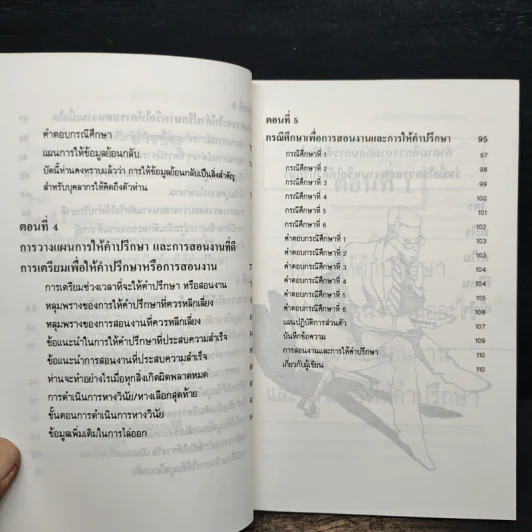 คำตอบกรณีศึกษา
แผนการให้ข้อมูลย้อนกลับ
บัดนี้ท่านคงทราบแล้วว่า การให้ข้อมูลย้อนกลับเป็นสิ่งสำคัญ
สำหรับบุคลากรให้คิดถึงตัวท่าน
ตอนที่ 4
การวางแผนการให้คำปรึกษา และการสอนงานที่ดี
การเตรียมเพื่อให้คำปรึกษาหรือการสอนงาน
การเตรียมช่วงเวลาที่จะให้คำปรึกษา หรือสอนงาน
หลุมพรางของการให้คำปรึกษาที่ควรหลีกเลี่ยง
หลุมพรางของการสอนงานที่ควรหลีกเลี่ยง
ข้อแนะนำในการให้คำปรึกษาที่ประสบความสำเร็จ
ข้อแนะนำการสอนงานที่ประสบความสำเร็จ
ท่านจะทำอย่างไรเมื่อทุกสิ่งเกิดผิดพลาดหมด
การดำเนินการทางวินัย/ทางเลือกสุดท้าย
ขั้นตอนการดำเนินการทางวินัย
ข้อมูลเพิ่มเติมในการไล่ออก
ตอนที่ 5
กรณีศึกษาเพื่อการสอนงานและการให้คำปรึกษา 95
กรณีศึกษาที่ 1 97
กรณีศึกษาที่ 2 98
กรณีศึกษาที่ 3 99
กรณีศึกษาที่ 4 100
กรณีศึกษาที่ 5 101
กรณีศึกษาที่ 6 102
คำตอบกรณีศึกษาที่ 1 103
คำตอบกรณีศึกษาที่ 2 103
คำตอบกรณีศึกษาที่ 3 104
คำตอบกรณีศึกษาที่ 4 104
คำตอบกรณีศึกษาที่ 5 105
คำตอบกรณีศึกษาที่ 6 106
แผนปฏิบัติการส่วนตัว 107
บันทึกข้อความ 109
การสอนงานและการให้คำปรึกษา 110
เกี่ยวกับผู้เขียน 110